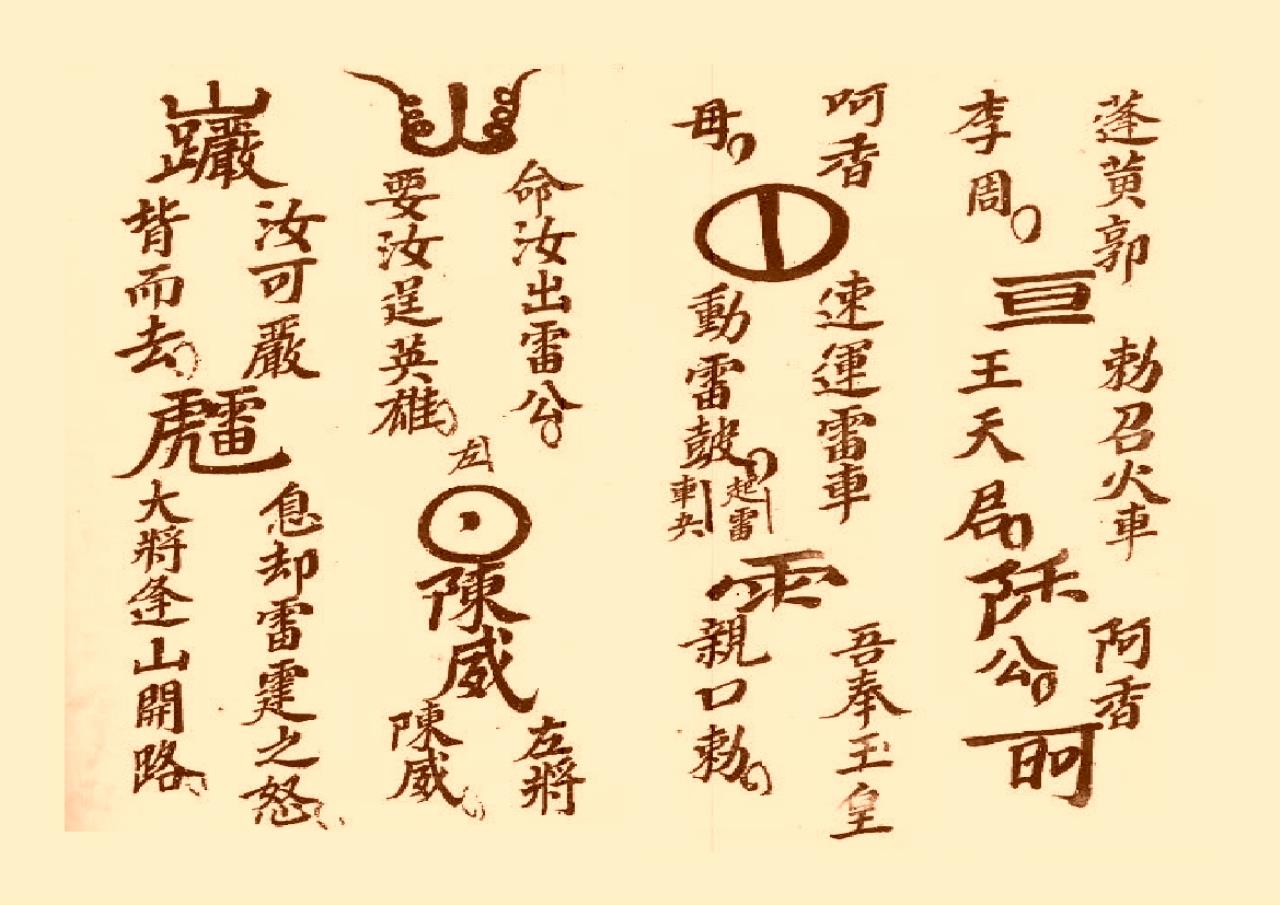 蓬黄郭
李周
亘
勅召火車
王天君
阿香
公
呵香
母
速運雷車
動雷鼓
起雷
車
吾奉玉皇
親口勅
命汝出雷公
要汝逞英雄
左
陳威
左將
陳威
汝可嚴
背而去
息却雷霆之怒
大將逢山開路